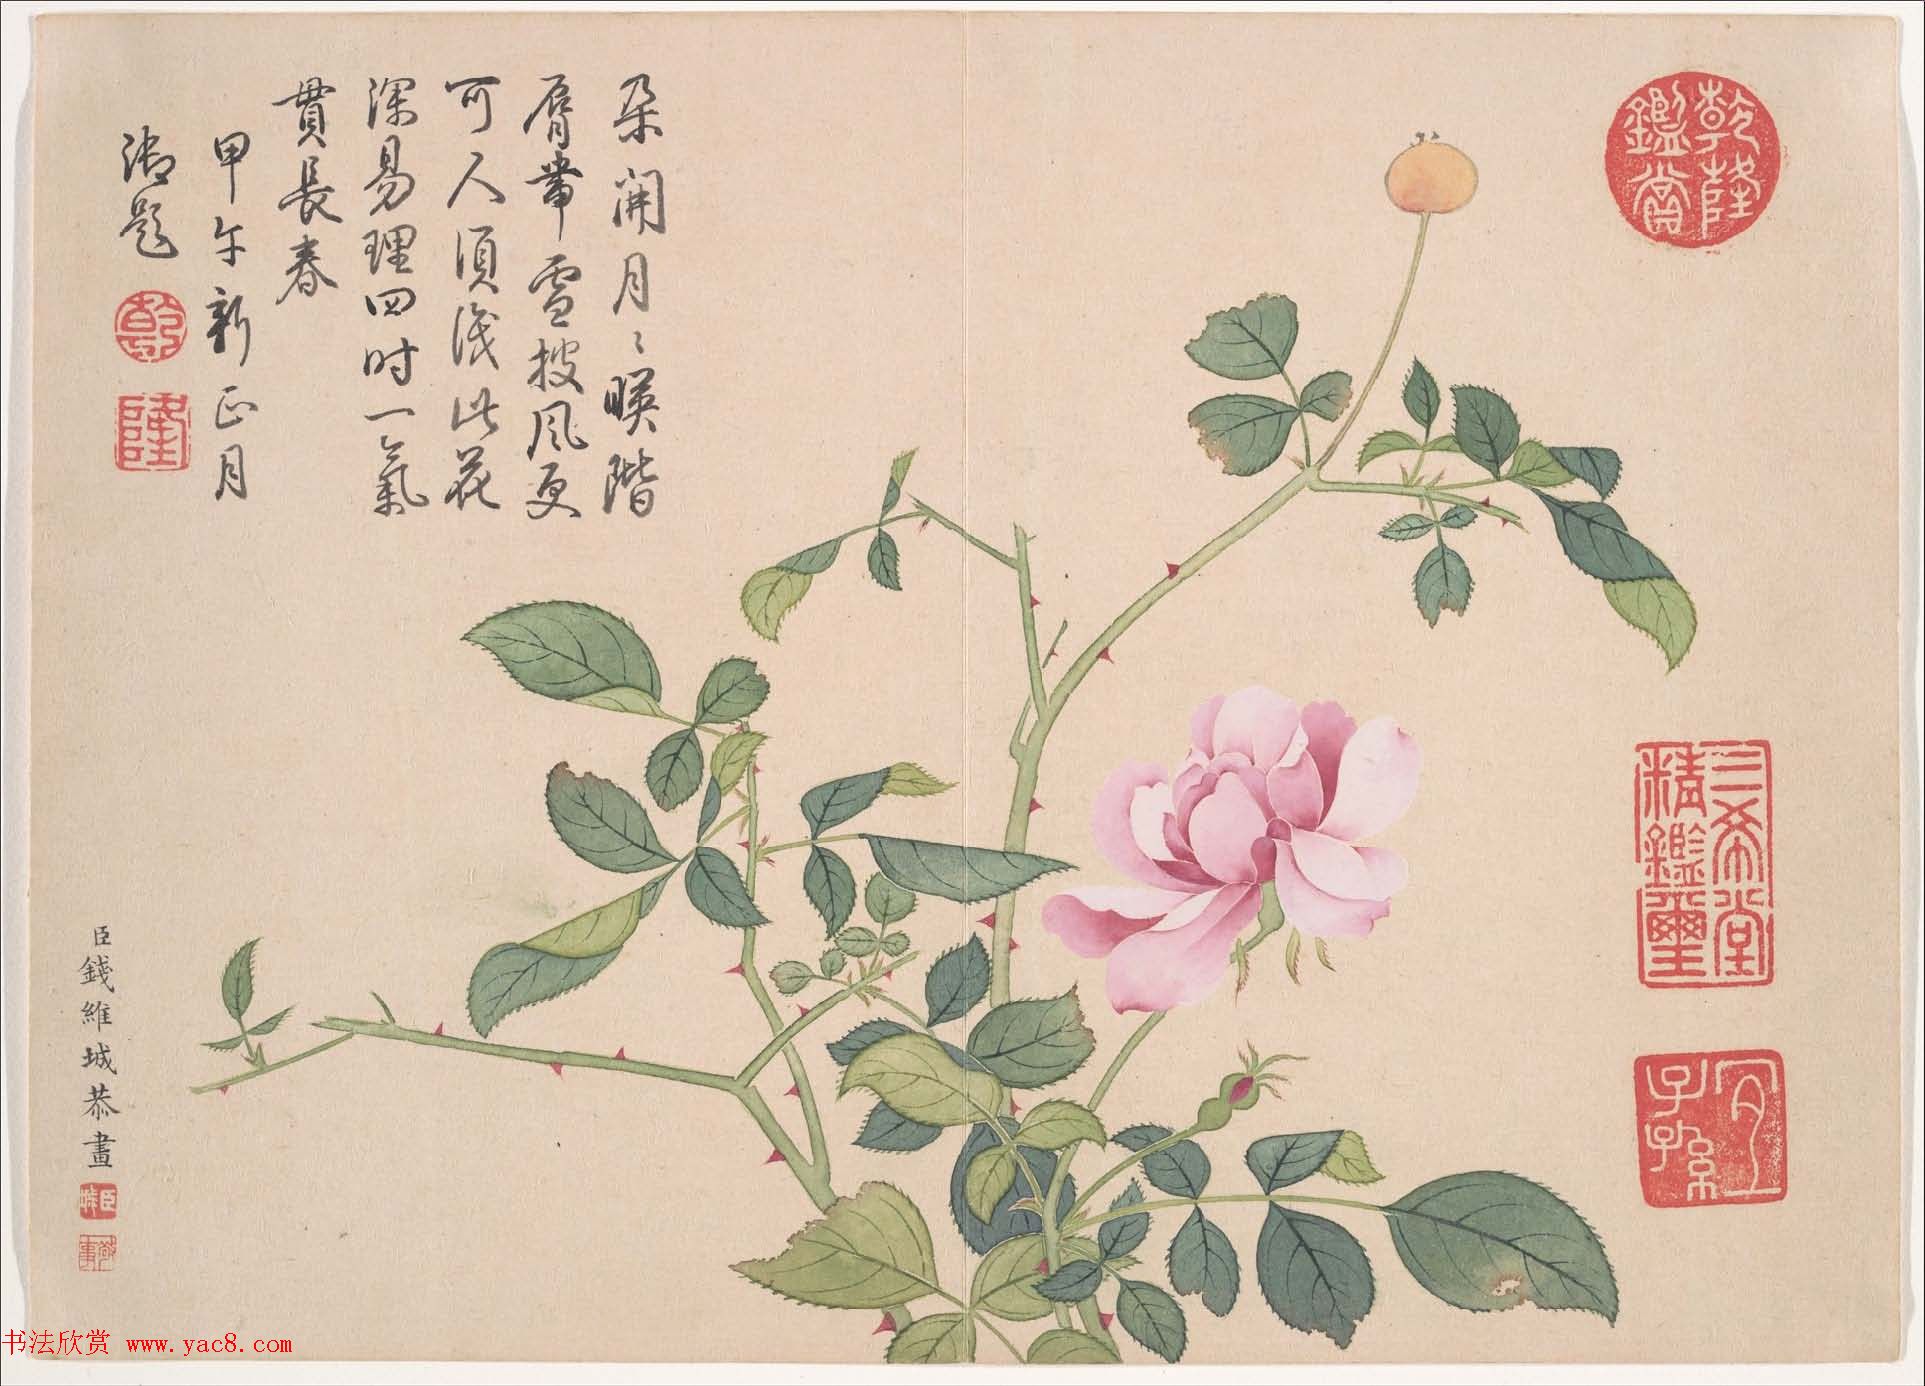 乾隆鑑賞
三希堂精鑑璽
宜子孫
朶開月〻暎階
脣帶雪披風更
可人須識此花
深易理四時一氣
貫長春
甲午新正月
御題
乾
隆
臣錢維城恭畫
臣城
书法欣赏 www.yac8.com